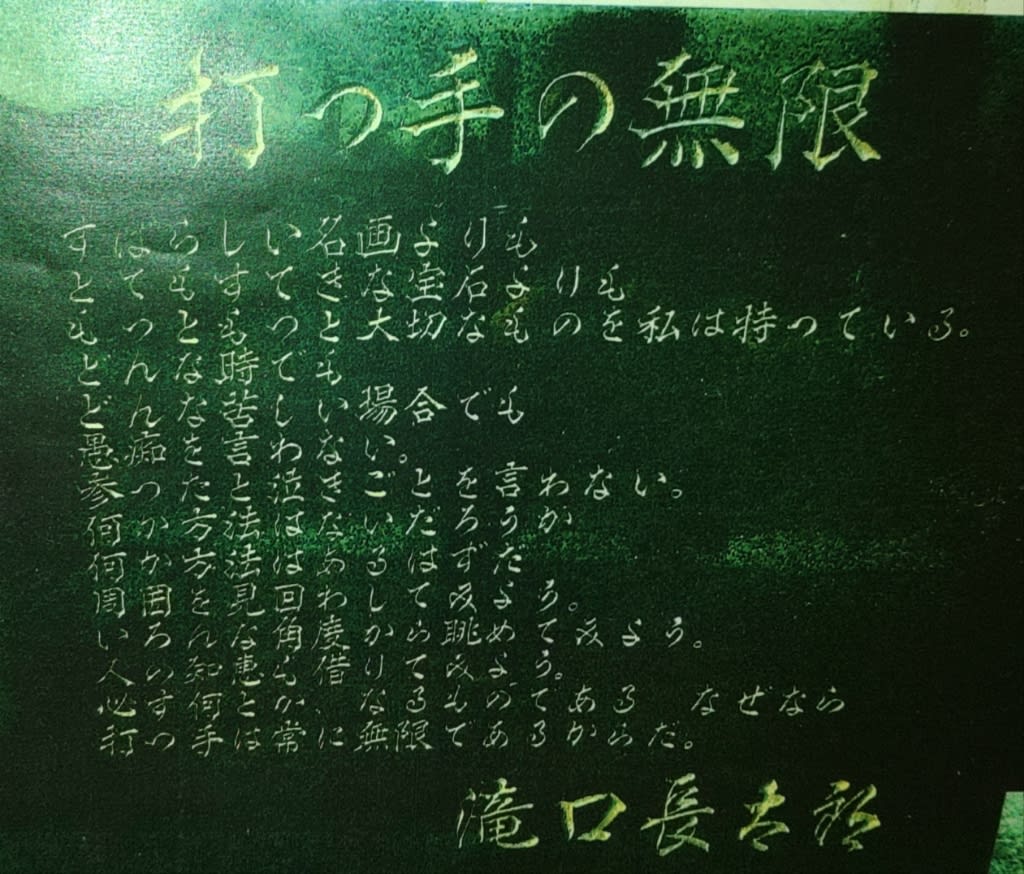 打つ手の無限
すばらしい名画よりも
とてもすてきな宝石よりも
もっともっと大切なものを私は持っている。
どんな時でも
どんな苦しい場合でも
愚痴を言わない。
参ったと泣きごとを言わない。
何か方法はないだろうか
何か方法はあるはずだ
周囲を見回わしてみよう。
いろんな角度から眺めてみよう。
人の知恵も借りてみよう。
必ず何とかなるものである なぜなら
打つ手は常に無限であるからだ。
滝口長太郎